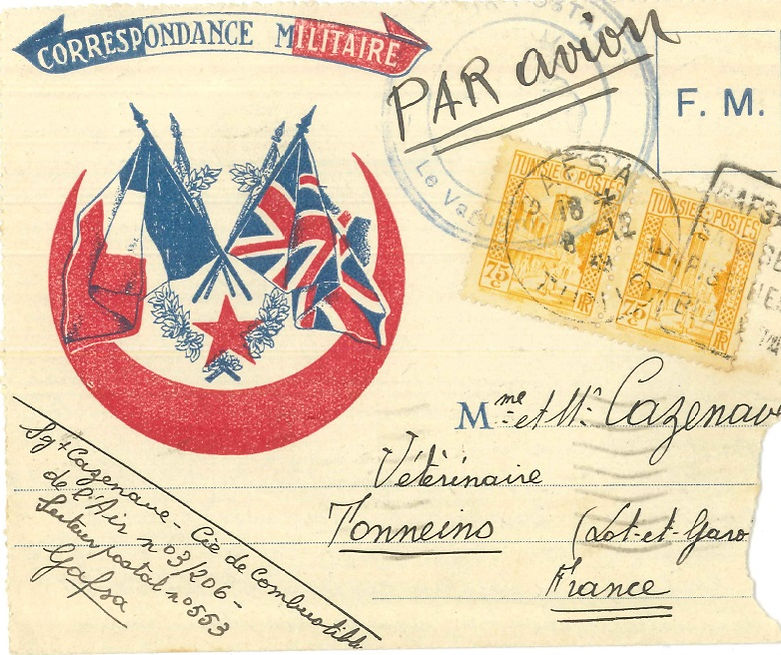 CORRESPONDANCE MILITAIRE
PAR avion
F. M.
Le Vagu
TUNISIE POSTES
75c
RF
TUNISIE POSTES
75c
RF
Mme et Mr Cazenav
Vétérinaire
Tonneins (Lot-et-Garo
France
Sgt Cazenave - Cie de Combustible
de l'Air no 3/206 -
Secteur postal no 553
Gafsa